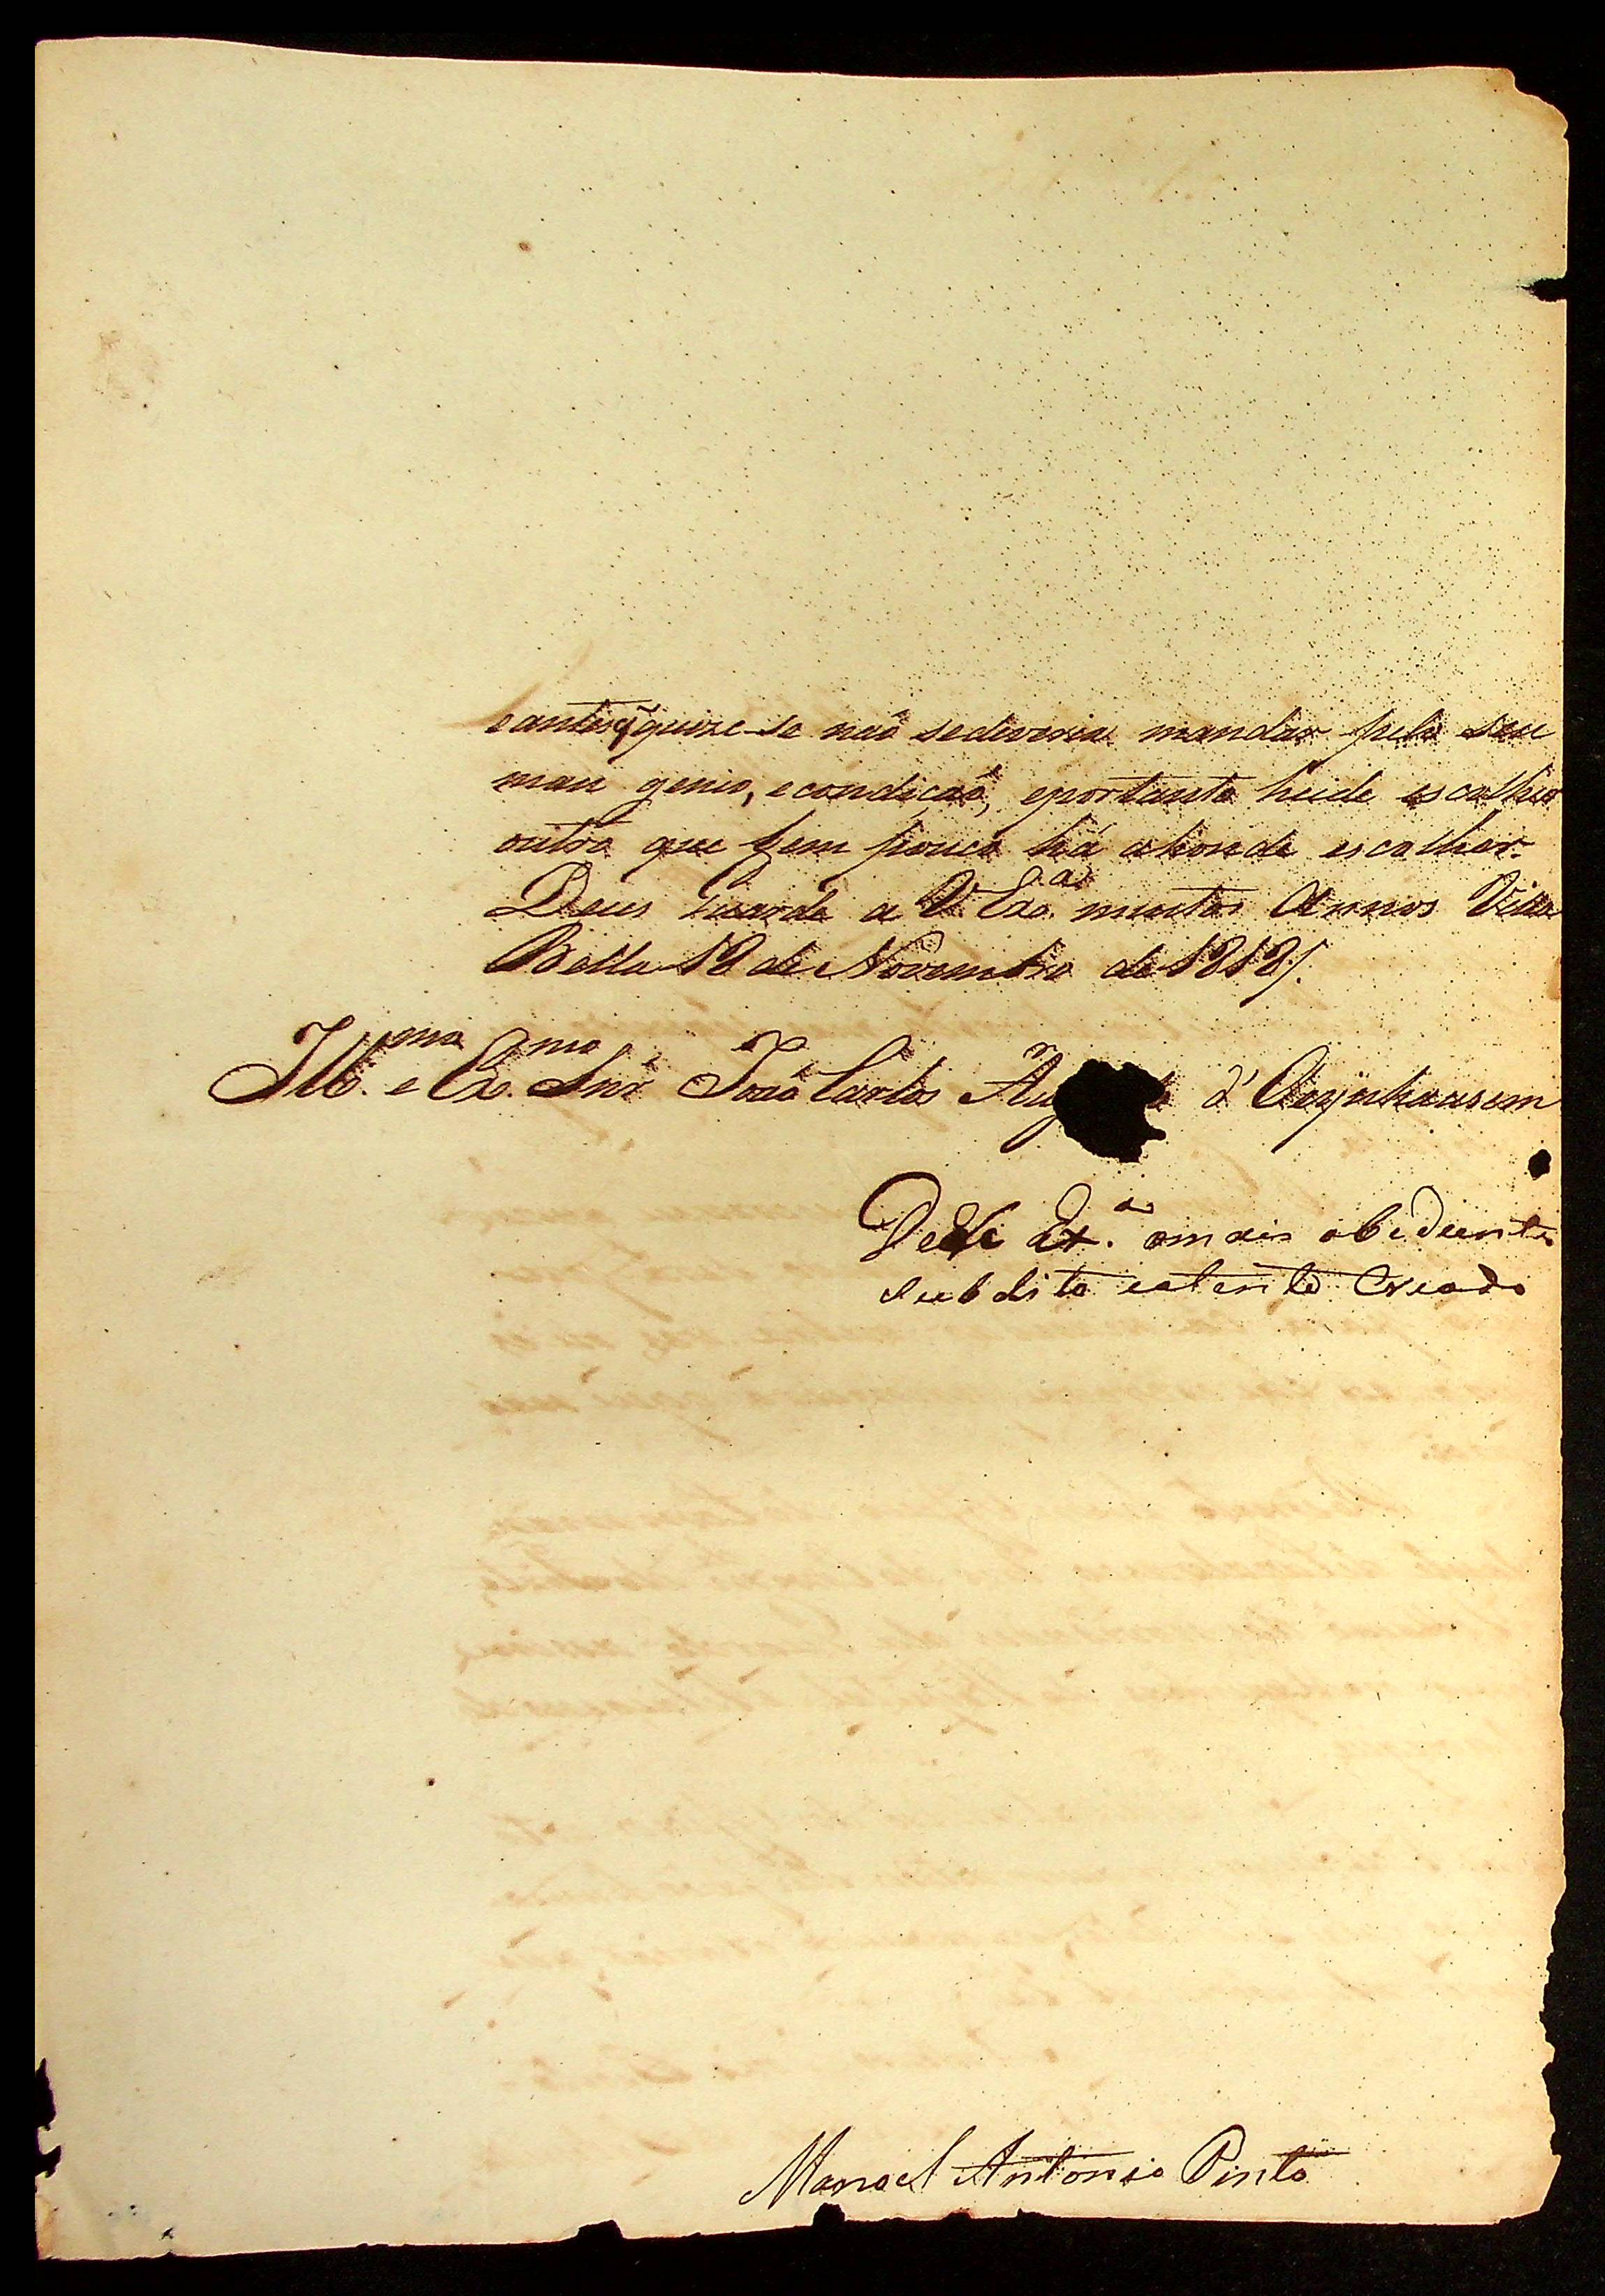 e antes q̃ quize-se não sedeveria mandar pelo seu
mau genio, econdição, eportanto heide escolher
outro que bem pouco há ahonde escolher.
Deus Guarde a V Exa. muitos Annos Villa
Bella 18 de Novembro de 1818/.
Illmo. e Exmo. Snr João Carlos Aug d'Oeynhausem
De V Exa. omais obediente
Subdito eatento Creado
Manoel Antonio Pinto